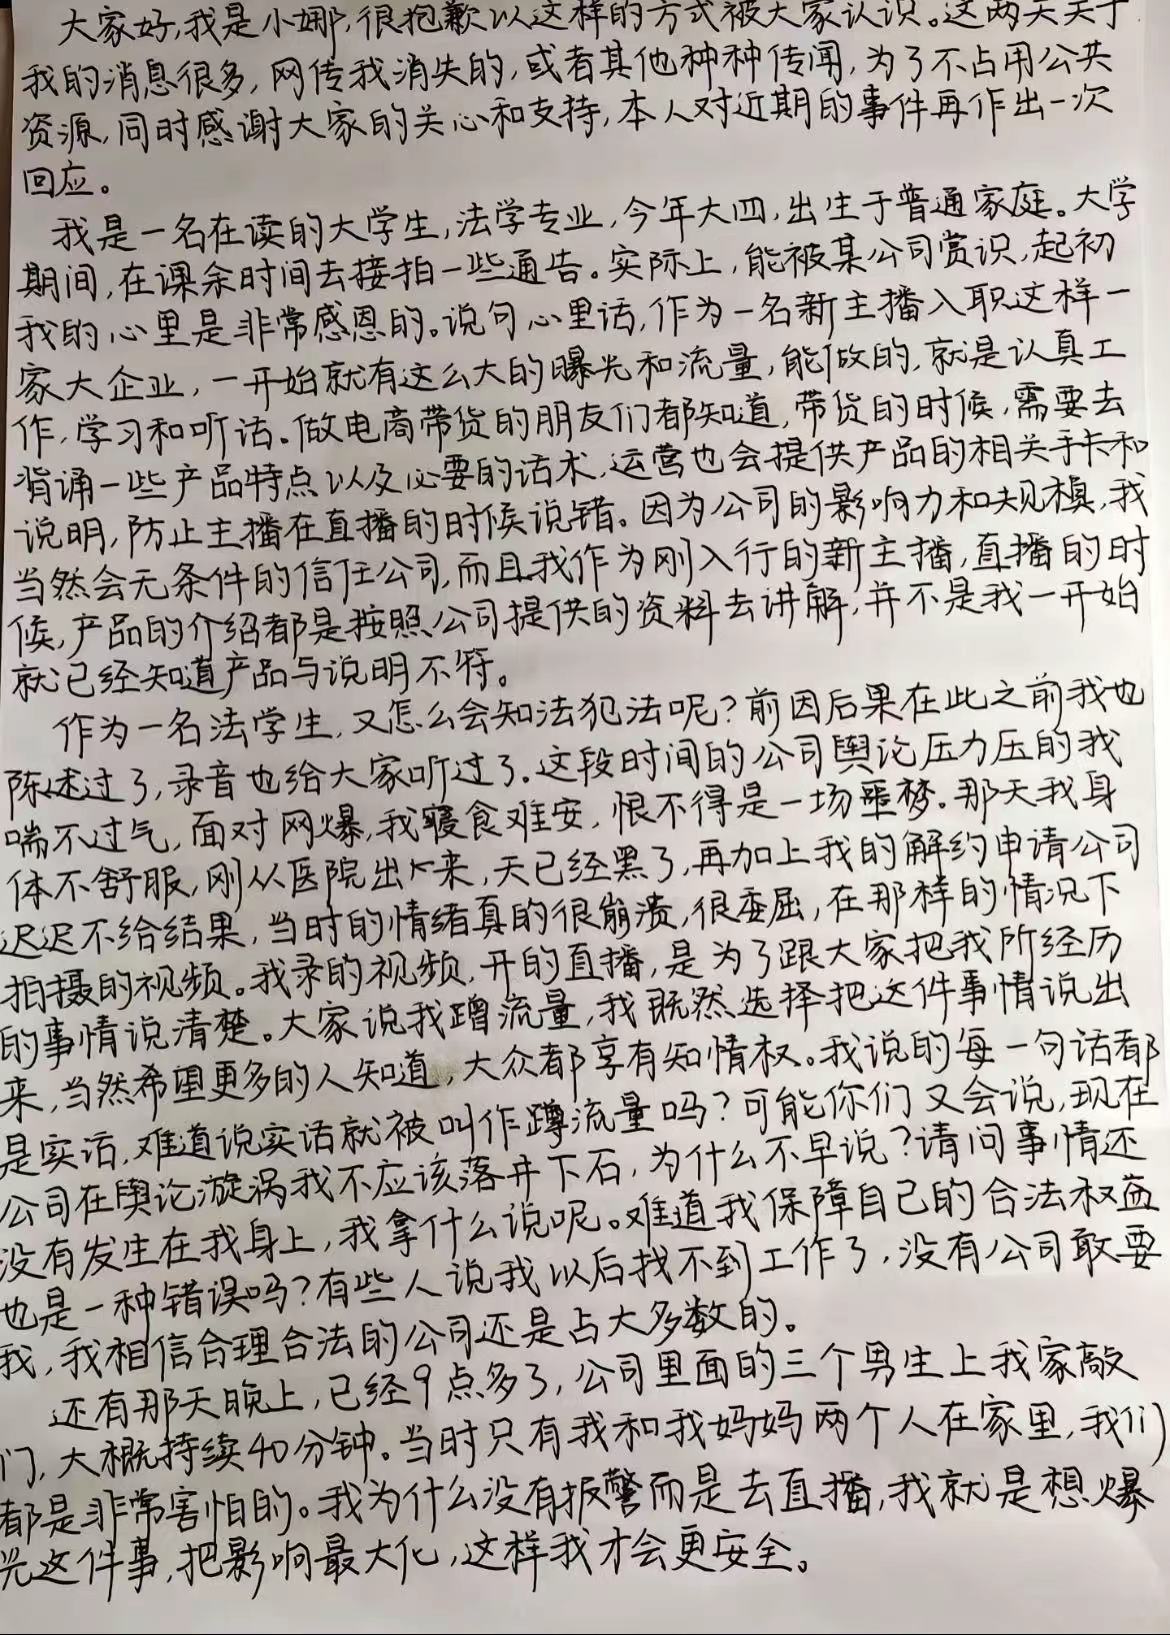 大家好,我是小娜,很抱歉以这样的方式被大家认识。这两天关于
我的消息很多,网传我消失的,或者其他种种传闻,为了不占用公共
资源,同时感谢大家的关心和支持,本人对近期的事件再作出一次
回应。
我是一名在读的大学生,法学专业,今年大四,出生于普通家庭。大学
期间,在课余时间去接拍一些通告。实际上,能被某公司赏识,起初
我的心里是非常感恩的。说句心里话,作为一名新主播入职这样一
家大企业,一开始就有这么大的曝光和流量,能做的,就是认真工
作,学习和听话。做电商带货的朋友们都知道,带货的时候,需要去
背诵一些产品特点以及必要的话术,运营也会提供产品的相关手卡和
说明,防止主播在直播的时候说错。因为公司的影响力和规模,我
当然会无条件的信任公司,而且我作为刚入行的新主播,直播的时
候,产品的介绍都是按照公司提供的资料去讲解,并不是我一开始
就已经知道产品与说明不符。
作为一名法学生,又怎么会知法犯法呢?前因后果在此之前我也
陈述过了,录音也给大家听过了。这段时间的公司舆论压力压的我
喘不过气,面对网爆,我寝食难安,恨不得是一场噩梦。那天我身
体不舒服,刚从医院出来,天已经黑了,再加上我的解约申请公司
迟迟不给结果,当时的情绪真的很崩溃,很委屈,在那样的情况下
拍摄的视频。我录的视频,开的直播,是为了跟大家把我所经历
的事情说清楚。大家说我蹭流量,我既然选择把这件事情说出
来,当然希望更多的人知道,大众都享有知情权。我说的每一句话都
是实话,难道说实话就被叫作蹭流量吗?可能你们又会说,现在
公司在舆论漩涡我不应该落井下石,为什么不早说?请问事情还
没有发生在我身上,我拿什么说呢。难道我保障自己的合法权益
也是一种错误吗?有些人说我以后找不到工作了,没有公司敢要
我,我相信合理合法的公司还是占大多数的。
还有那天晚上,已经9点多了,公司里面的三个男生上我家敲
门,大概持续40分钟。当时只有我和我妈妈两个人在家里,我们
都是非常害怕的。我为什么没有报警而是去直播,我就是想爆
光这件事,把影响最大化,这样我才会更安全。